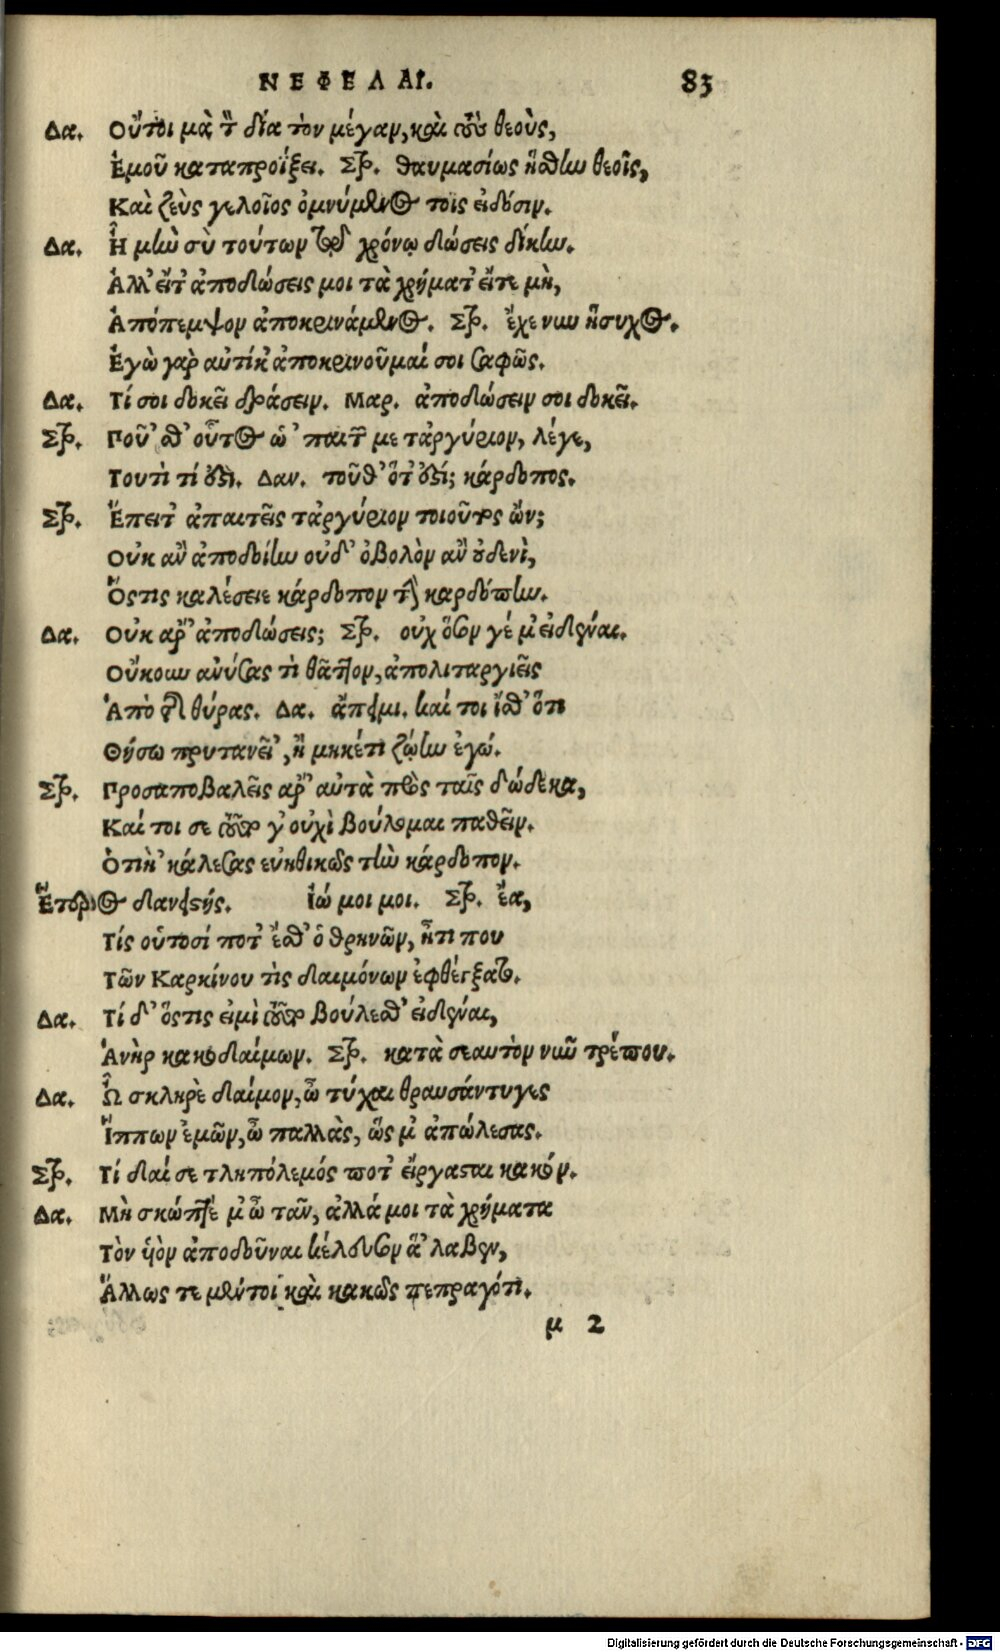 ΝΕΦΕΛΑΙ. 83
Δα. Οὔτοι μὰ τὸν δία τὸν μέγαν, καὶ τοὺς θεοὺς,
Ἐμοῦ καταπροΐξει. Στρ. θαυμασίως ἥσθην θεοῖς,
Καὶ ζεὺς γελοῖος ὀμνύμενος τοῖς εἰδόσιν.
Δα. Ἦ μὴν σὺ τούτων τῷ χρόνῳ δώσεις δίκην.
Ἀλλ' εἴτ' ἀποδώσεις μοι τὰ χρήματ' εἴτε μὴ,
Ἀπόπεμψον ἀποκρινάμενος. Στρ. ἔχε νυν ἥσυχος.
Ἐγὼ γὰρ αὐτίκ' ἀποκρινοῦμαί σοι σαφῶς.
Δα. Τί σοι δοκεῖ δράσειν. Μαρ. ἀποδώσειν σοι δοκεῖ.
Στρ. Ποῦ 'σθ' οὗτος ὁ 'παιτῶν με τἀργύριον, λέγε,
Τουτὶ τί ἐστὶ. Δαν. τοῦθ' ὅτ' ἐστί; κάρδοπος.
Στρ. Ἔπειτ' ἀπαιτεῖς τἀργύριον τοιοῦτος ὤν;
Οὐκ ἂν ἀποδοίην οὐδ' ὀβολὸν ἂν οὐδενὶ,
Ὅστις καλέσειε κάρδοπον τὴν καρδόπην.
Δα. Οὐκ ἄρ' ἀποδώσεις; Στρ. οὐχ ὅσον γέ μ' εἰδέναι.
Οὔκουν ἀνύσας τὶ θᾶττον, ἀπολιταργιεῖς
Ἀπὸ τῆς θύρας. Δα. ἄπειμι. καί τοι ἴσθ' ὅτι
Θήσω πρυτανεῖ', ἢ μηκέτι ζῴην ἐγώ.
Στρ. Προσαποβαλεῖς ἄρ' αὐτὰ πρὸς ταῖς δώδεκα,
Καί τοι σε τοῦτό γ' οὐχὶ βούλομαι παθεῖν.
Ὁτιὴ 'κάλεσας εὐηθικῶς τὴν κάρδοπον.
Ἕτερος δανειστής. Ἰώ μοι μοι. Στρ. ἔα,
Τίς οὑτοσί ποτ' ἔσθ' ὁ θρηνῶν, ἦτι που
Τῶν Καρκίνου τὶς δαιμόνων ἐφθέγξατο.
Δα. Τί δ' ὅστις εἰμὶ τοῦτο βούλεσθ' εἰδέναι,
Ἀνὴρ κακοδαίμων. Στρ. κατὰ σεαυτὸν νυν τρέπου.
Δα. Ὦ σκληρὲ δαίμον, ὦ τύχαι θραυσάντυγες
Ἵππων ἐμῶν, ὦ παλλὰς, ὥς μ' ἀπώλεσας.
Στρ. Τί δαί σε τληπόλεμός ποτ' εἴργασται κακόν.
Δα. Μὴ σκῶπτέ μ' ὦ τᾶν, ἀλλά μοι τὰ χρήματα
Τὸν ὑὸν ἀποδοῦναι κέλευσον ἅ 'λαβεν,
Ἄλλως τε μέντοι καὶ κακῶς πεπραγότι.
μ 2
Digitalisierung gefördert durch die Deutsche Forschungsgemeinschaft - DFG